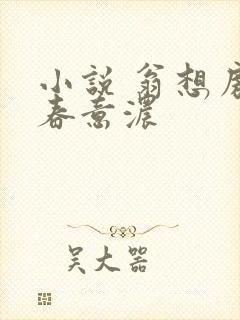 小說 翁想
春意濃
吴大器